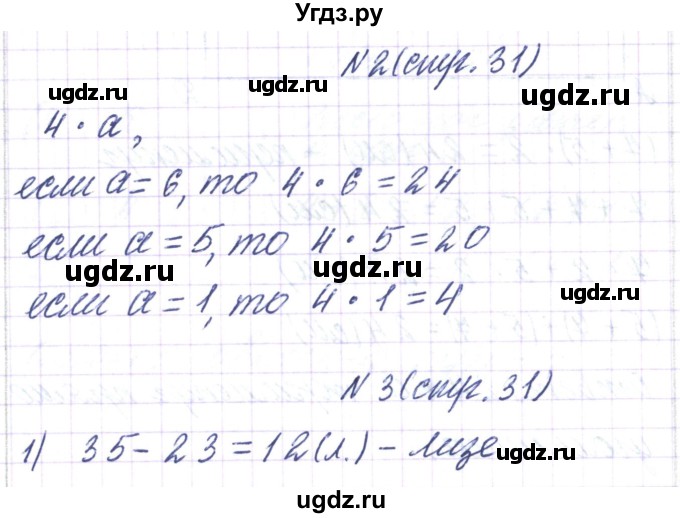 Угдз.ру
N2(стр. 31)
ugdz.ru ugdz.ru
4 · a,
если a = 6, то 4 · 6 = 24
ugdz.ru
если a = 5, то 4 · 5 = 20
ugdz.ru ugdz.ru
если a = 1, то 4 · 1 = 4
ugdz.ru
N 3(стр. 31)
1) 35 - 23 = 12(л.) - лизе
ugdz.ru
ugdz.ru